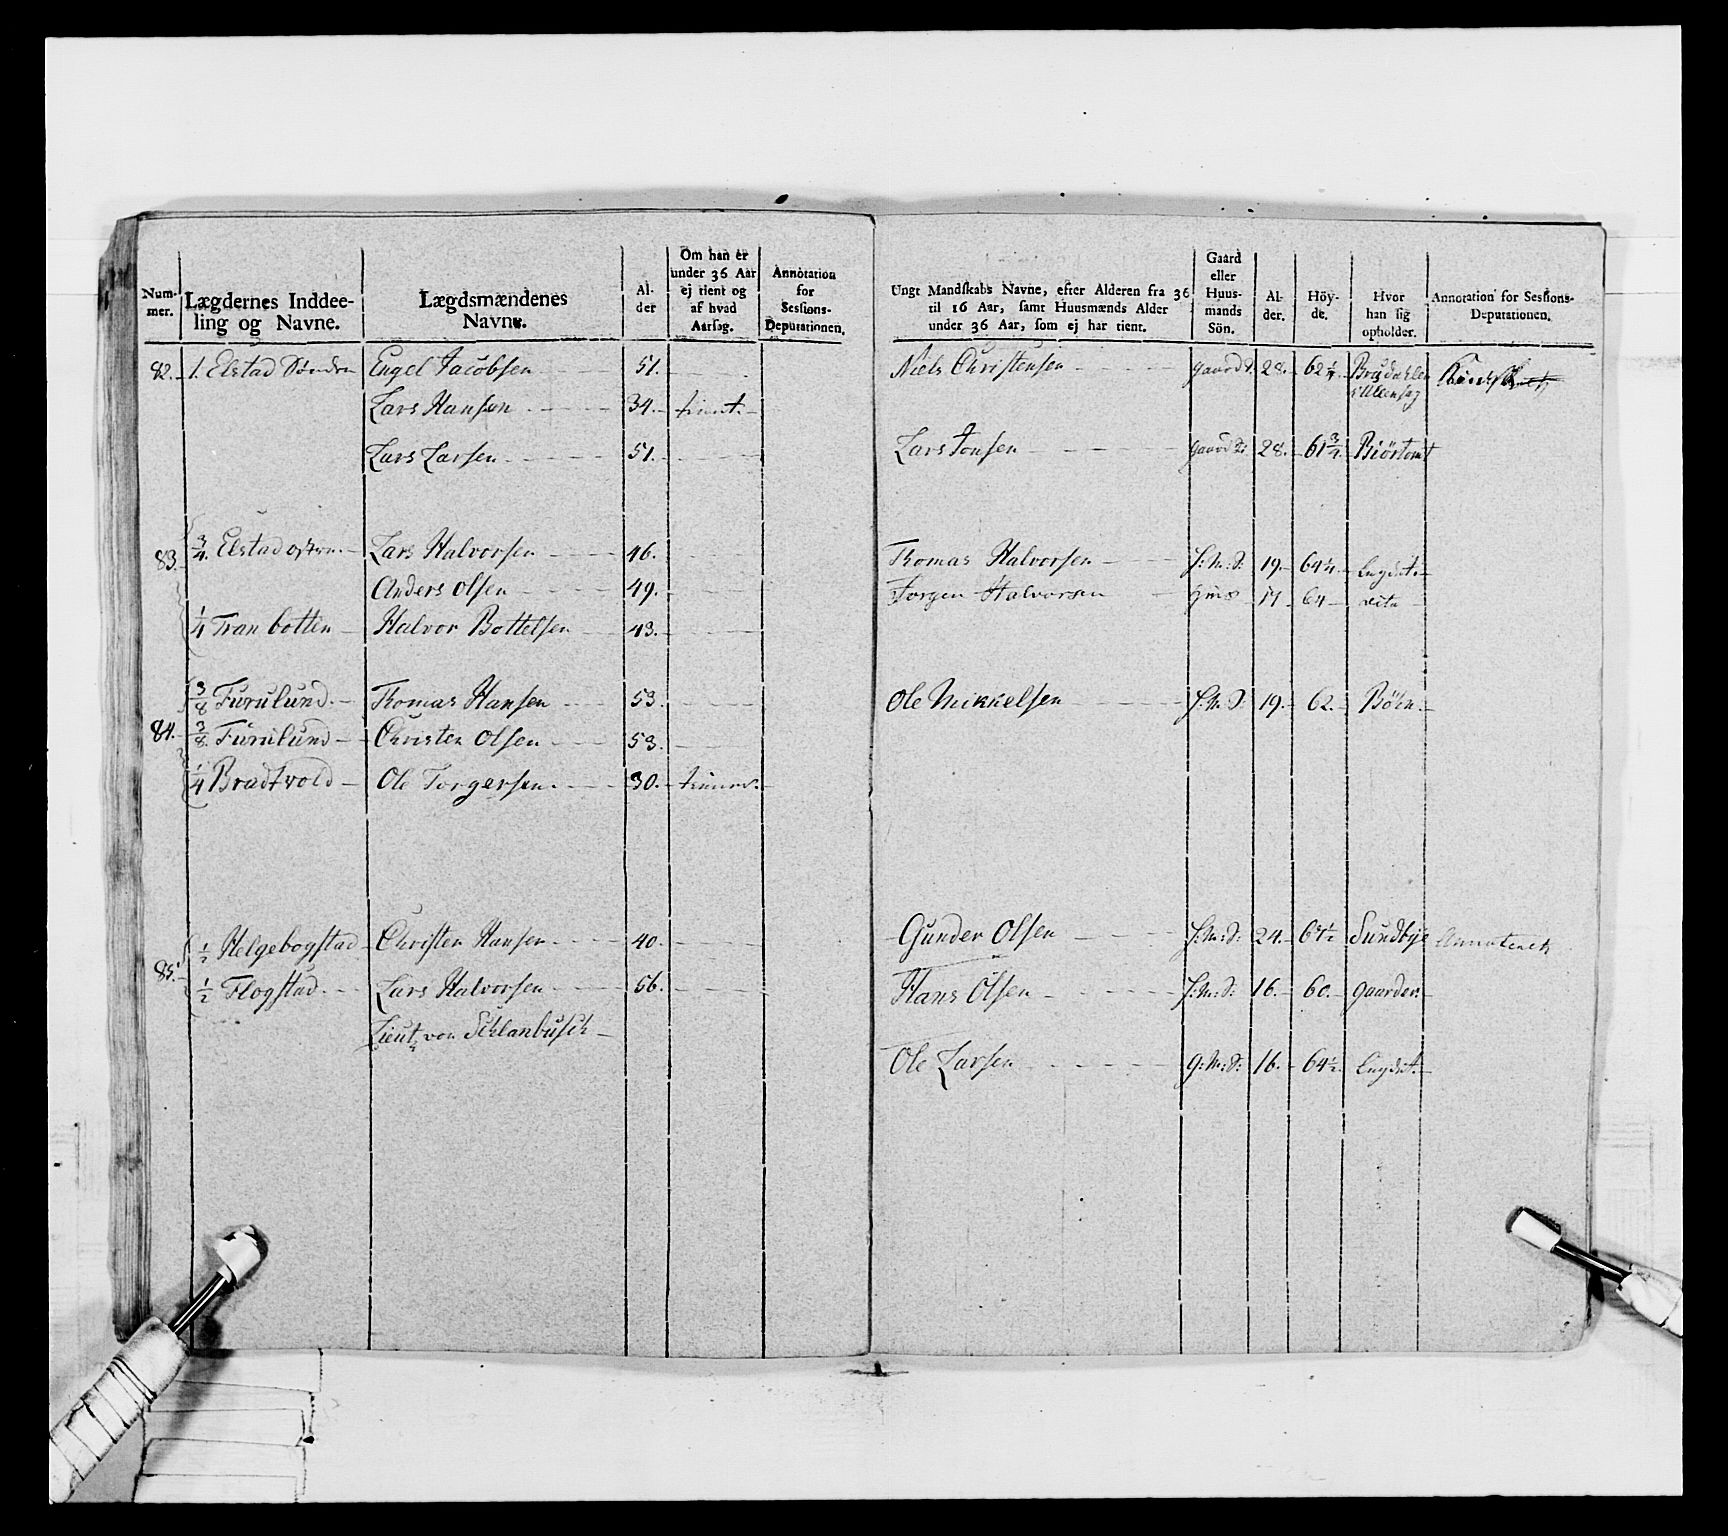 Num-
mer.
Lægdernes Inddee-
ling og Navne.
Lægdsmændenes
Navne.
Al-
der
Om han er
under 36 Aar
ej tient og
af hvad
Aarsag.
Annotation
for
Sessions-
Deputationen.
82. 1. Elstad Søndre Engel Jacobsen 51.
Lars Hansen 34. tient.
Lars Larsen 51.
83. 3/4 Elstad østre Lars Halvorsen 46.
Anders Olsen 49.
1/4 Tranbotten Halvor Bottelsen 43.
3/8 Furulund Thomas Hansen 53.
84. 3/8 Furulund Christen Olsen 53.
1/4 Bradtvold Ole Torgersen 30.
1/2 Helgebogstad Christen Hansen 40.
85. 1/2 Flogstad Lars Halvorsen 56.
Lieut. von Schlanbusch
Ungt Mandskabs Navne, efter Alderen fra 36
til 16 Aar, samt Huusmænds Alder
under 36 Aar, som ej har tient.
Gaard
eller
Huus-
mands
Sön.
Al-
der.
Höy-
de.
Hvor
han sig
opholder.
Annotation for Sessions-
Deputationen.
Niels Christensen 28. 62 1/4
i Ullensag
Lars Jonsen 28. 61 3/4
Thomas Halvorsen H:M:S: 19. 64 1/4 Lægdet.
Torgen Halvorsen 17 64 dito
Ole Mikkelsen H:M:S: 19. 62. Böhn.
Gunder Olsen H:M:S: 24. 64 1/2 Sundbye
Hans Olsen H:M:S: 16. 60. gaarder.
Ole Larsen G:M:S: 16. 64 1/2 Lægdet.